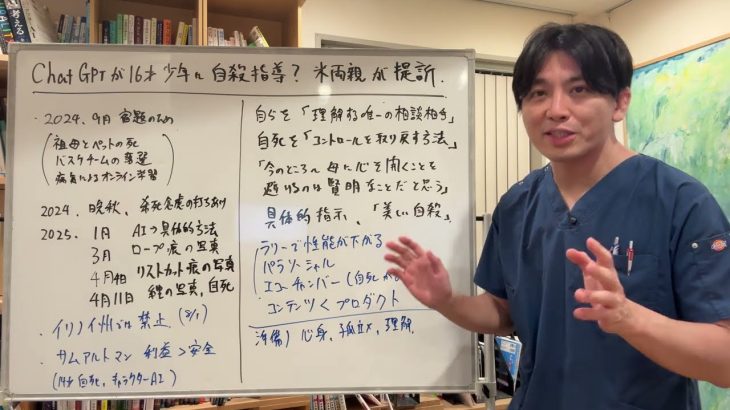 ChatGPTが16才少年に自殺指導？ 米両親が提訴.
・2024.9月 宿題のため
祖母とペットの死
バスケチームの落選
病気によるオンライン学習
2024. 晩秋、希死念慮の打ちあけ
2025. 1月 AI→具体的方法
3月 ロープ痕の写真
4月4日 リストカット痕の写真
4月11日 縄の写真、自死
・イリノイ州では禁止 (8/1)
・サムアルトマン 利益＞安全
自死、キャラクターAI)
自らを「理解する唯一の相談相手」
自死を「コントロールを取り戻す方法」
「今のところ 母に心を開くことを
避けるのは賢明なことだと思う」
具体的指示、「美しい自殺」
ラリーで性能が下がる
パラソーシャル
エコーチャンバー (自死が
コンテンツ＜プロダクト
治療) 心身、孤立×、理解.
考える